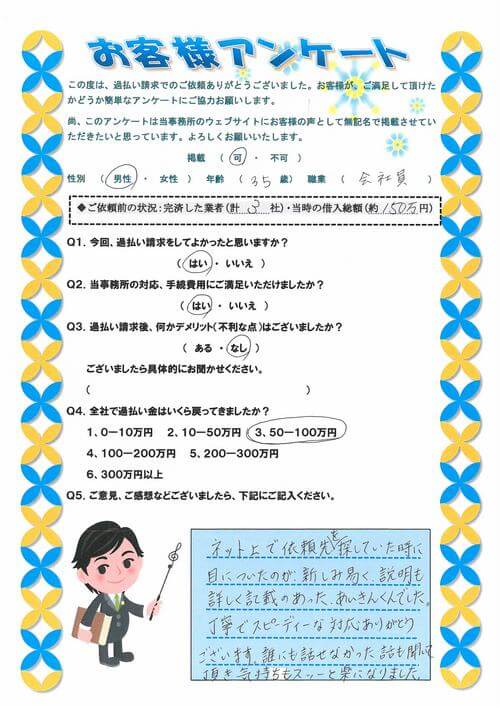 お客様アンケート
この度は、過払い請求でのご依頼ありがとうございました。お客様が、ご満足して頂けた
かどうか簡単なアンケートにご協力お願いします。
尚、このアンケートは当事務所のウェブサイトにお客様の声として無記名で掲載させてい
ただきたいと思っています。よろしくお願いいたします。
掲載 ( 可 ・ 不可 )
性別 ( 男性 ・ 女性 ) 年齢 ( 35 歳) 職業 ( 会社員 )
◆ご依頼前の状況:完済した業者(計 3 社)・当時の借入総額(約 150万円)
Q1. 今回、過払い請求をしてよかったと思いますか?
( はい ・ いいえ )
Q2. 当事務所の対応、手続費用にご満足いただけましたか?
( はい ・ いいえ )
Q3. 過払い請求後、何かデメリット(不利な点)はございましたか?
( ある ・ なし )
ございましたら具体的にお聞かせください。
( )
Q4. 全社で過払い金はいくら戻ってきましたか?
1、0-10万円 2、10-50万円 3、50-100万円
4、100-200万円 5、200-300万円
6、300万円以上
Q5. ご意見、ご感想などございましたら、下記にご記入ください。
ネット上で依頼先を探していた時に
目についたのが、新しみ易く、説明も
詳しく記載のあった、あいきんくんでした。
丁寧でスピーディーな対応ありがとう
ございます。誰にも話せなかった話も聞いて
頂き気持ちもスッーと楽になりました。